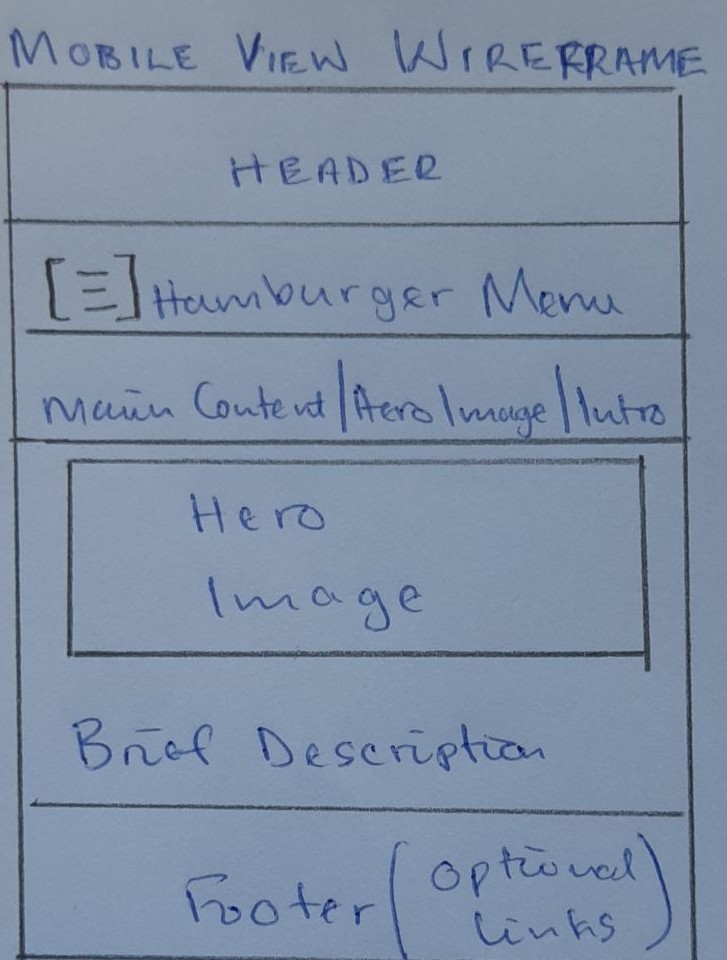 MOBILE VIEW WIREFRAME
HEADER
[☰] Hamburger Menu
Main Content/Hero Image/Intro
Hero
Image
Brief Description
Footer (Optional
Links)